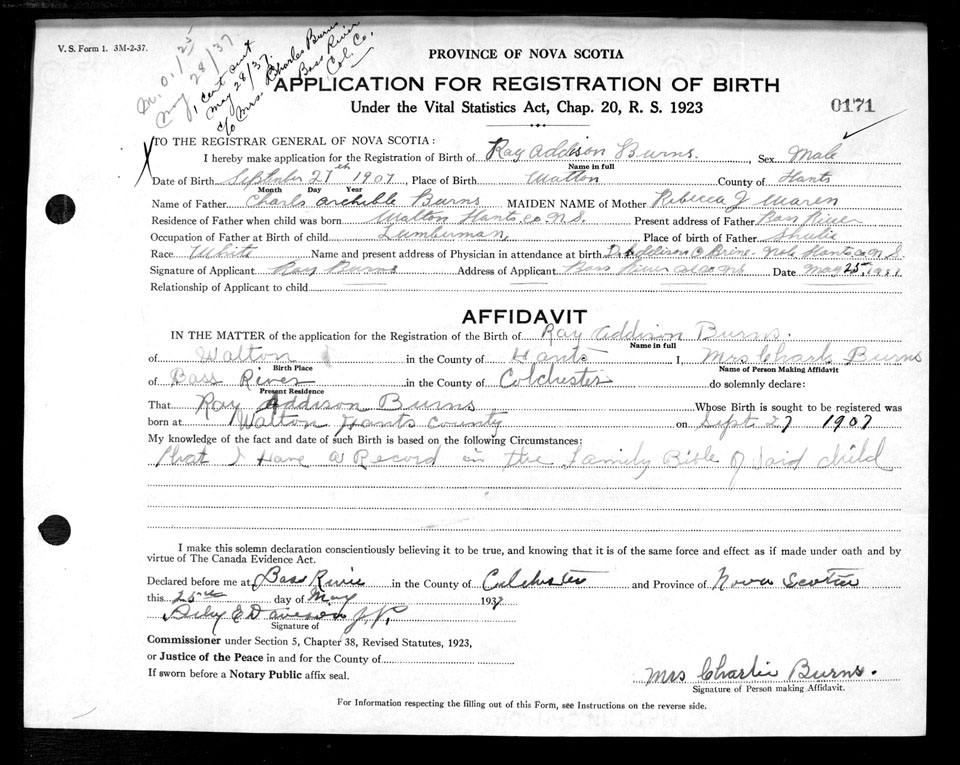 V. S. Form 1. 3M-2-37.
M.O. 1/25
May 28/37
1 cert sent
May 28/37
c/o Mrs. Charles Burns
Bass River
Col. Co.
PROVINCE OF NOVA SCOTIA
APPLICATION FOR REGISTRATION OF BIRTH
Under the Vital Statistics Act, Chap. 20, R. S. 1923
0171
TO THE REGISTRAR GENERAL OF NOVA SCOTIA:
I hereby make application for the Registration of Birth of Ray Addison Burns. , Sex Male
Name in full
Date of Birth September 27th 1907 , Place of Birth Walton County of Hants
Month Day Year
Name of Father Charls Archible Burns MAIDEN NAME of Mother Rebecca J Waren
Residence of Father when child was born Walton Hants Co N.S. Present address of Father Bass River
Occupation of Father at Birth of child Lumberman Place of birth of Father Shulie
Race White Name and present address of Physician in attendance at birth Dr Addison C Brine - Noel Hants co N.S.
Signature of Applicant Ray Burns Address of Applicant Bass River Date May 25, 
Relationship of Applicant to child
AFFIDAVIT
IN THE MATTER of the application for the Registration of the Birth of Ray Addison Burns.
Name in full
of Walton in the County of Hants I, Mrs Charls Burns
Birth Place Name of Person Making Affidavit
of Bass River in the County of Colchester do solemnly declare:
Present Residence
That Ray Addison Burns Whose Birth is sought to be registered was
born at Walton Hants County on Sept. 27 1907
My knowledge of the fact and date of such Birth is based on the following Circumstances:
That I Have a Record in the Family Bible of Said Child
I make this solemn declaration conscientiously believing it to be true, and knowing that it is of the same force and effect as if made under oath and by
virtue of The Canada Evidence Act.
Declared before me at Bass River in the County of Colchester and Province of Nova Scotia
this 25th day of May 1937
E Davison J.P.
Signature of
Commissioner under Section 5, Chapter 38, Revised Statutes, 1923,
or Justice of the Peace in and for the County of
If sworn before a Notary Public affix seal.
Mrs Charlie Burns.
Signature of Person making Affidavit.
For Information respecting the filling out of this Form, see Instructions on the reverse side.